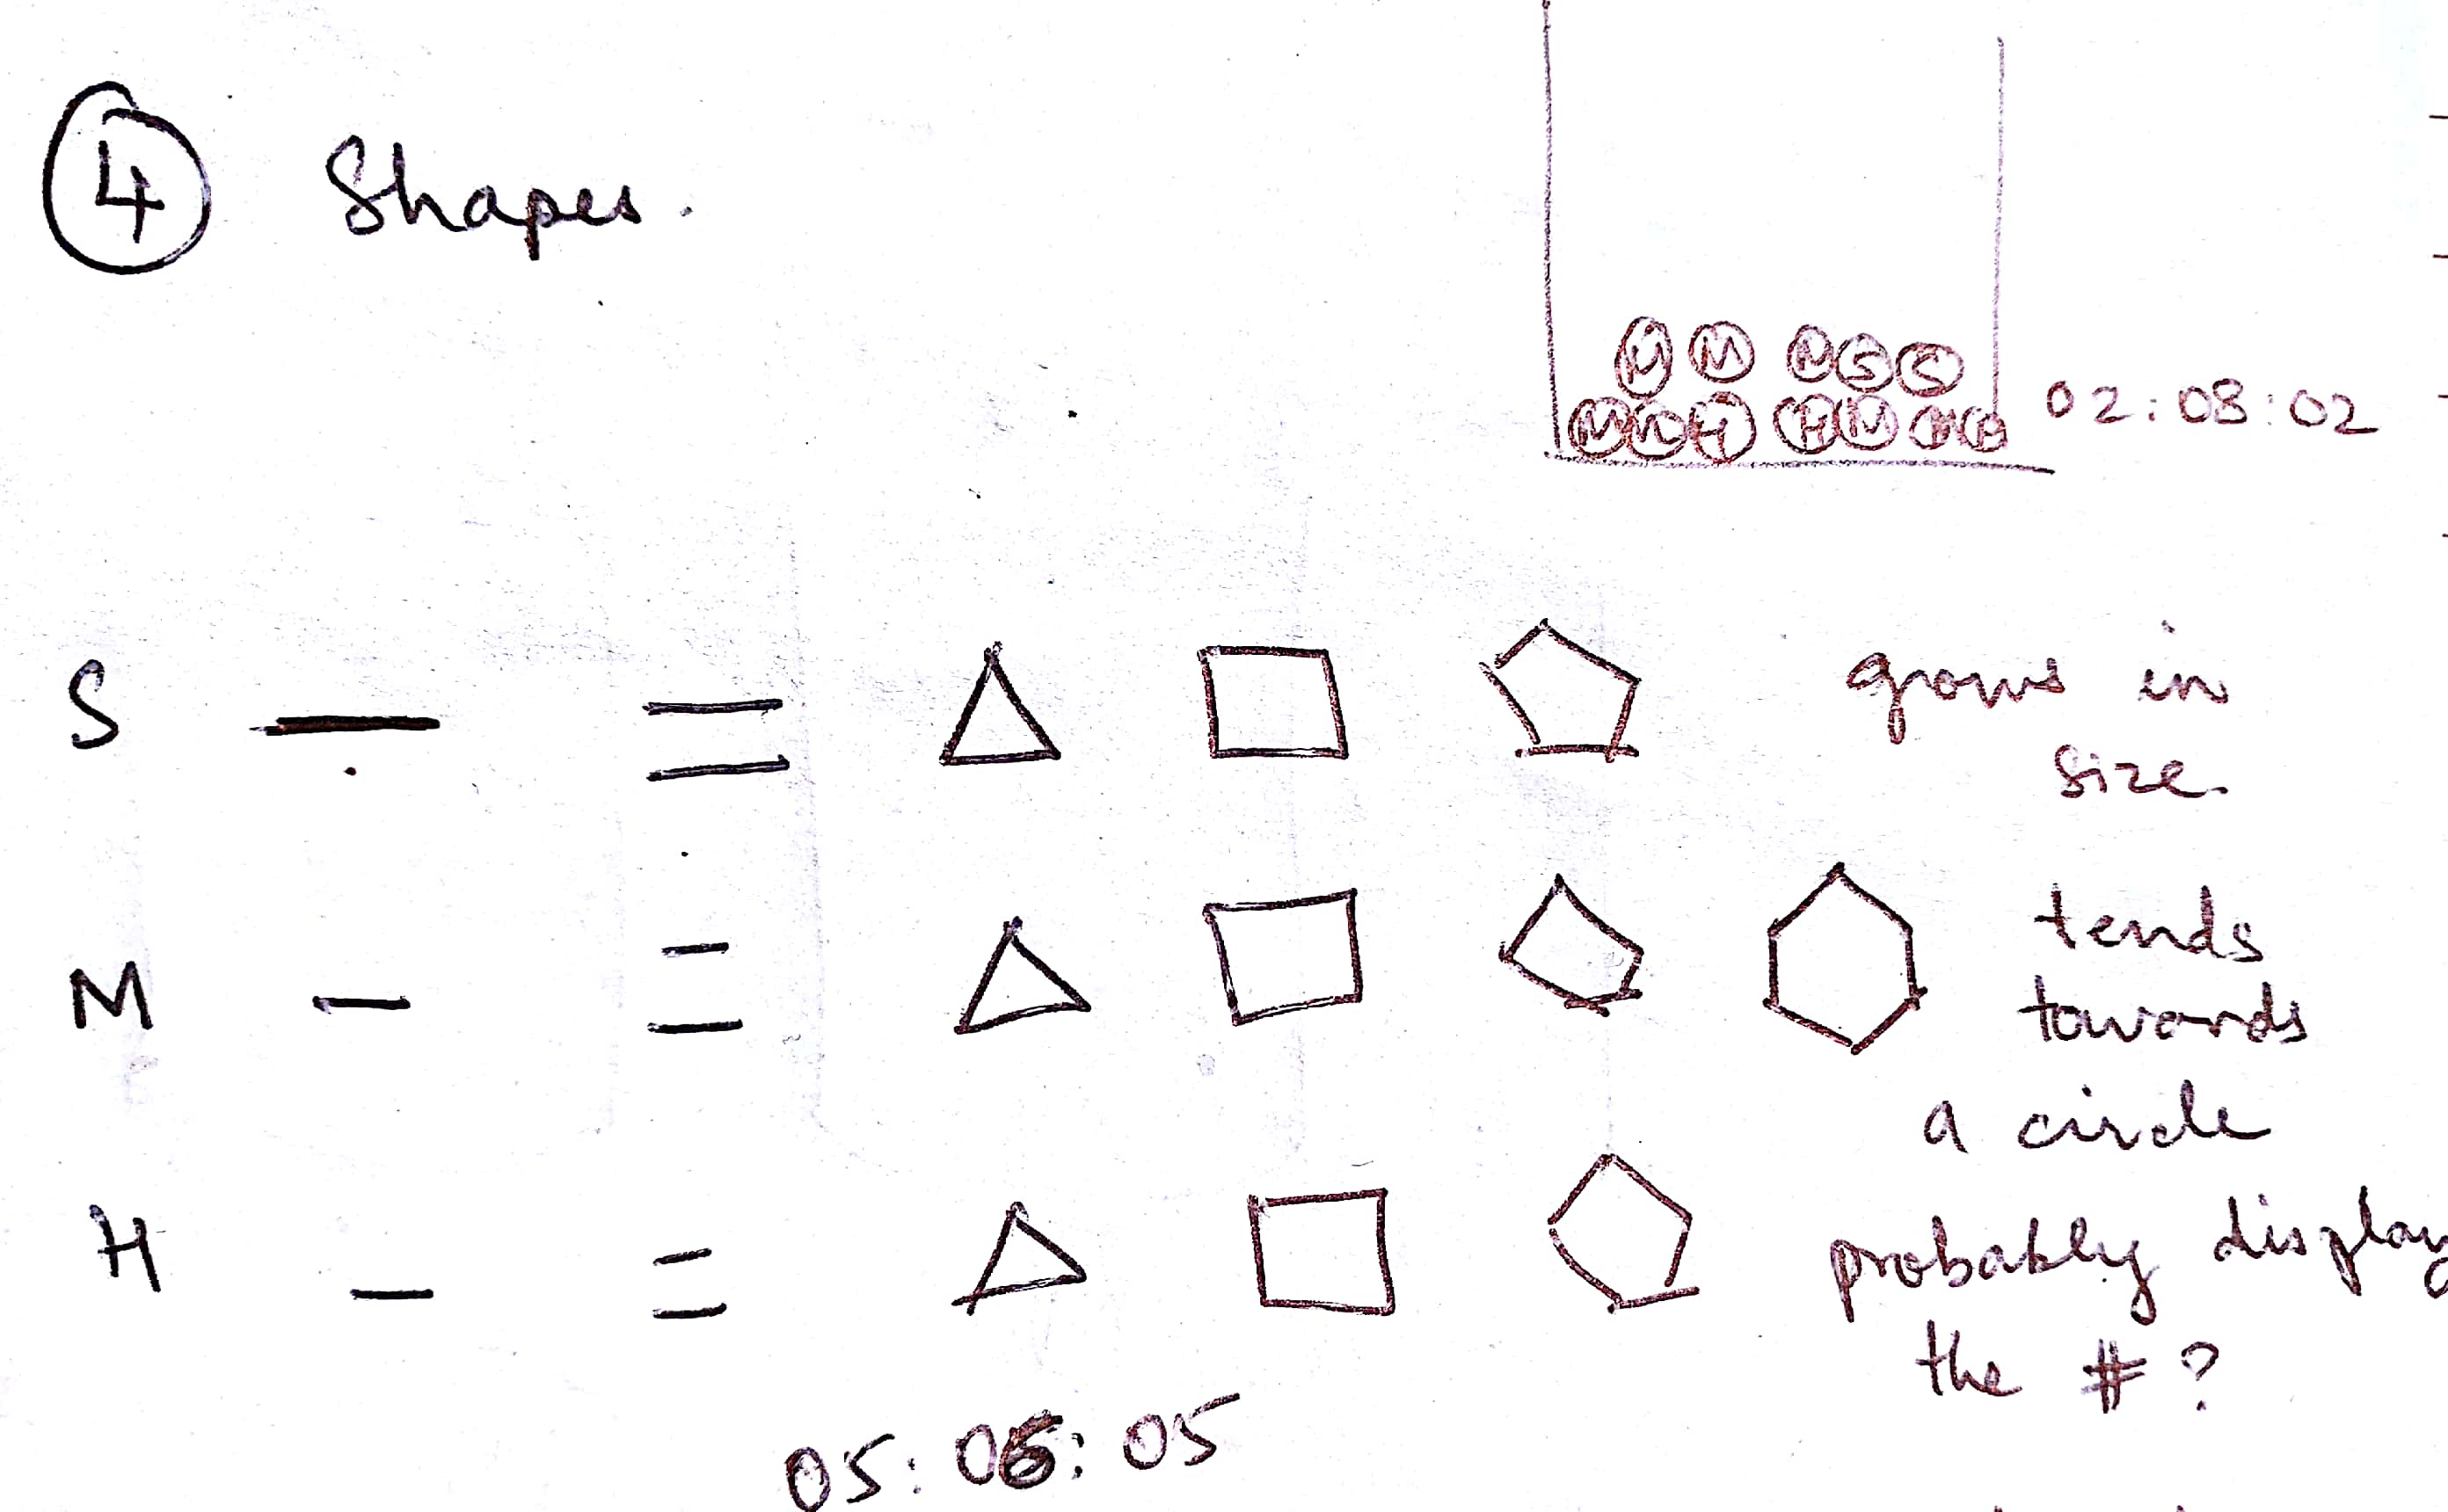 4 Shapes.
M M S S
M H H M
02:08:02
S grows in
size.
M tends
towards
a circle
H probably display
the # ?
05:06:05